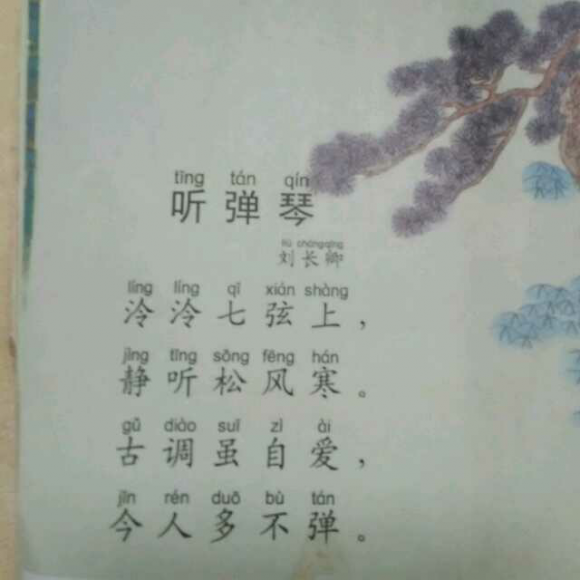 tīng tán qín
听弹琴
liú chángqīng
刘长卿
líng líng qī xián shàng
泠泠七弦上，
jìng tīng sōng fēng hán
静听松风寒。
gǔ diào suī zì ài
古调虽自爱，
jīn rén duō bù tán
今人多不弹。